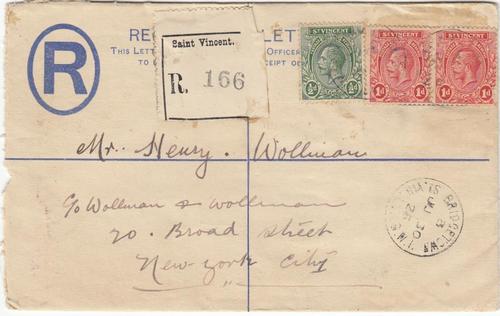 RE LETTER
THIS LETTER OFFICER
TO CEIPT OF
R
Saint Vincent.
R. 166
ST VINCENT
½d ½d
ST VINCENT
1d 1d
ST VINCENT
1d 1d
Mr. Henry. Wollman
c/o Wollman & Wollman
20. Broad Street
New-York City
BRIDGETOWN
B
JU 30
25